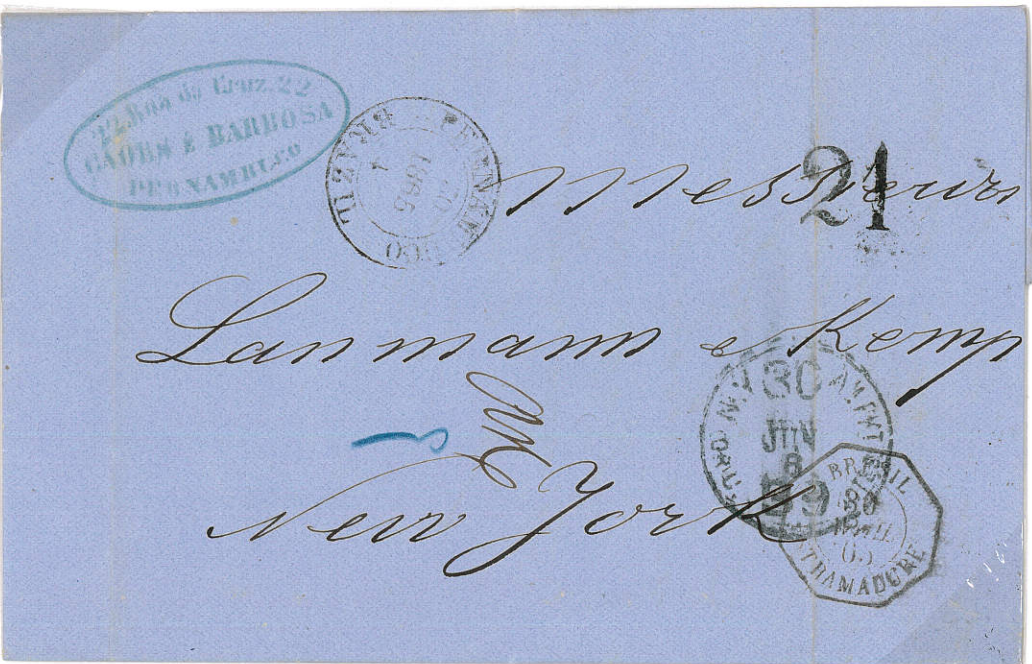 22. Rua da Cruz. 22
CAORS & BARBOSA
PERNAMBUCO
PERNAMBUCO
BRAZIL
1865
21
Messieurs
Lanmann e Kemp
New York
30
JUN
8
59
BRESIL
30
65
ESTRAMADURE